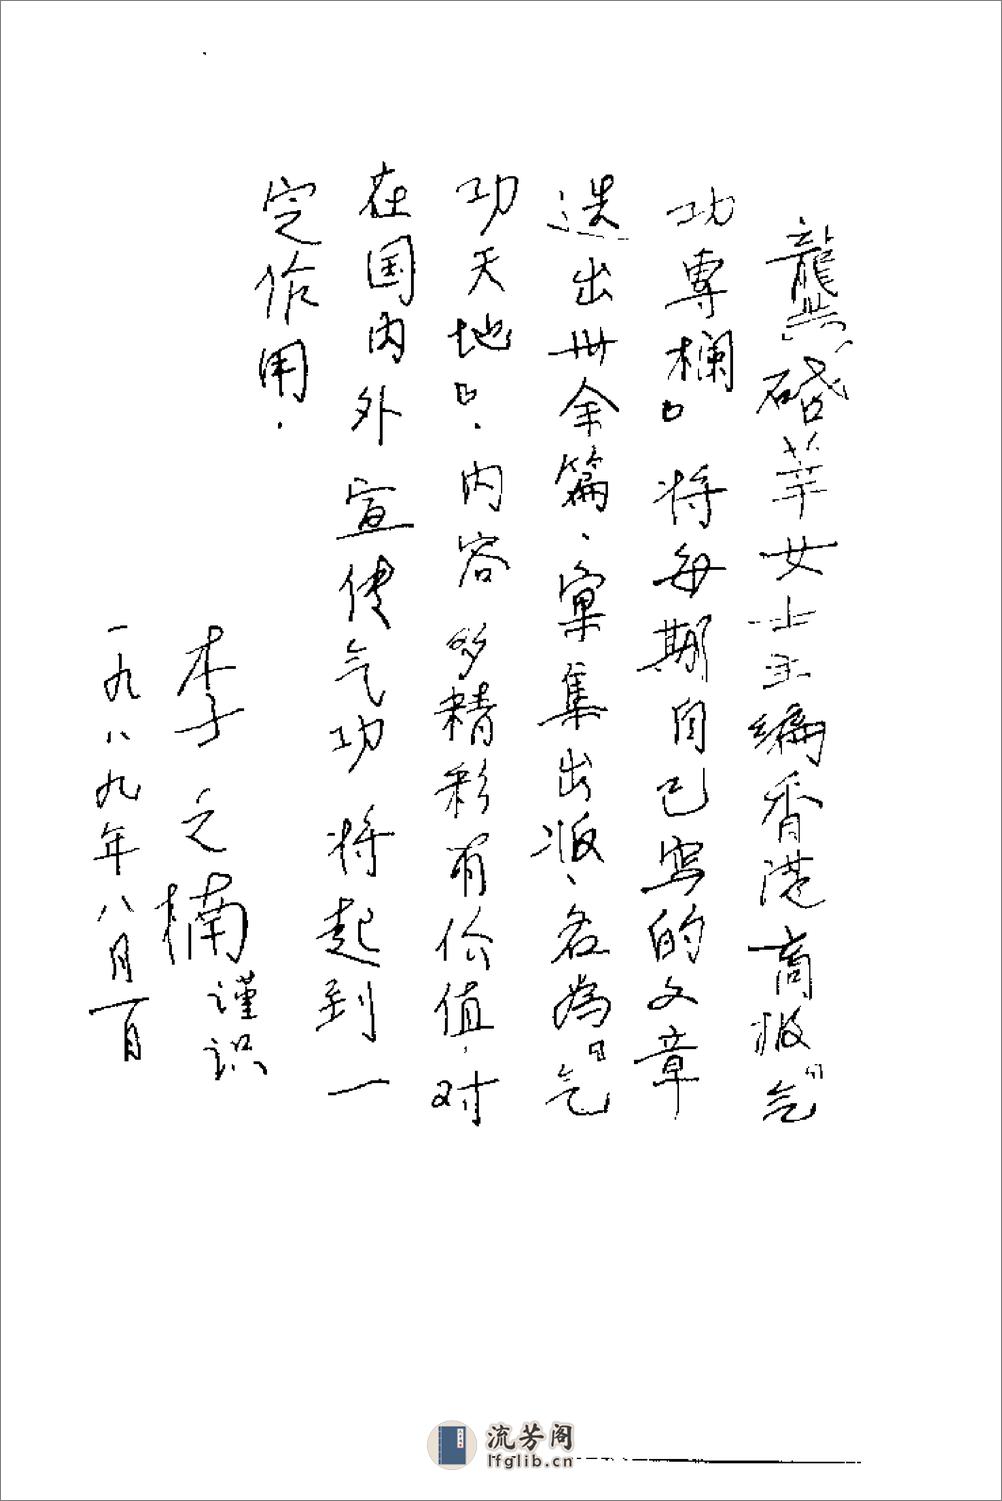 龔莘女士主編香港商报『气
功專欄』将每期自己写的文章
选出卅余篇、彙集出版、名為『气
功天地』.内容多精彩有价值.对
在国内外宣传气功将起到一
定作用.
李之楠谨识
一九八九年八月一日
流芳阁
lfglib.cn